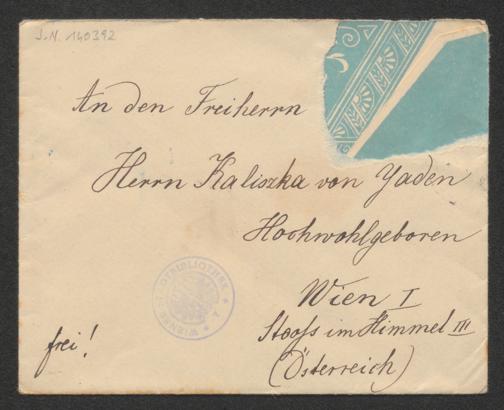 J.N. 140392
An den Freiherrn
Herrn Kaliszka von Yaden
Hochwohlgeboren
Wien I
Stooss im Himmel III
(Österreich)
frei!
WIENER STADTBIBLIOTHEK